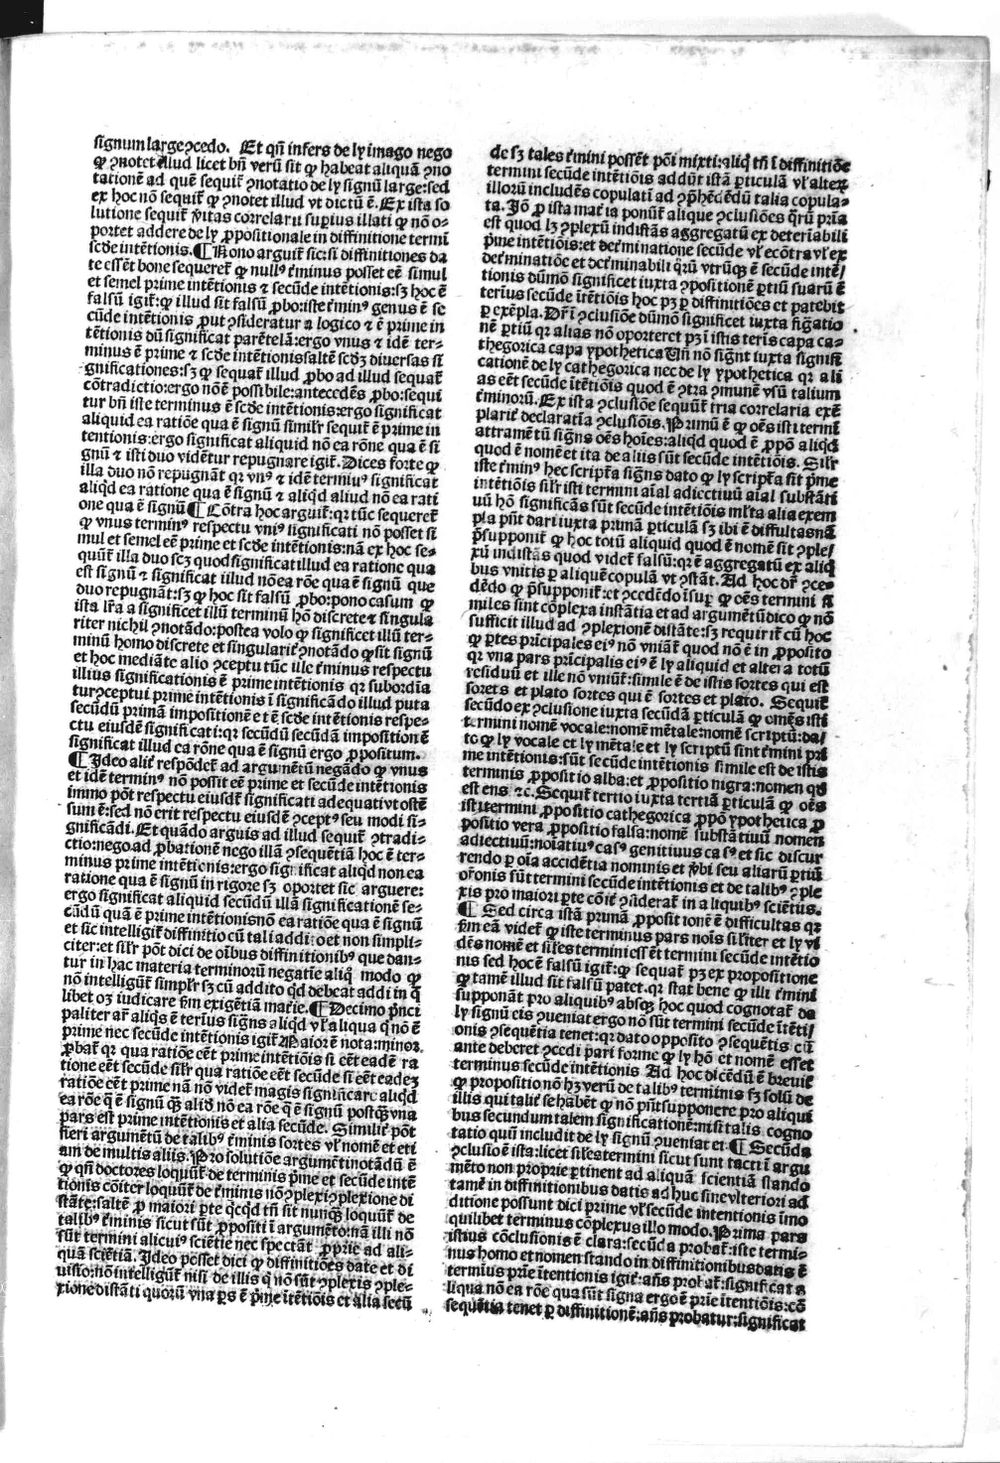 signum large ꝯcedo. Et qñ infers de ly imago nego
ꝙ ꝯnotet illud licet bñ verũ sit ꝙ habeat aliquã ꝯno
tationẽ ad quẽ sequit̃ ꝯnotatio de ly signũ large: sed
ex hoc nõ sequit̃ ꝙ ꝯnotet illud vt dictũ ẽ. Ex ista so
lutione sequit̃ ṽitas correlarii supius illati ꝙ nõ o-
portet addere de ly ꝓpositionale in diffinitione termĩ
scd̃e intẽtionis. ¶ Nono arguit̃ sic: si diffinitiones da
te essẽt bone sequeret̃ ꝙ null⁹ t̃minus posset eẽ simul
et semel prime intẽtionis ⁊ secũde intẽtionis: sꝫ hoc ẽ
falsũ igit̃: ꝙ illud sit falsũ ꝓbo: iste t̃min⁹ genus ẽ se
cũde intẽtionis ꝓut ꝯsideratur a logico ⁊ ẽ prime in
tẽtionis dũ significat parẽtelã: ergo vnus ⁊ idẽ ter-
minus ẽ prime ⁊ scd̃e intẽtionis saltẽ scd̃ꝫ diuersas si
gnificationes: sꝫ ꝙ sequat̃ illud ꝓbo ad illud sequat̃
cõtradictio: ergo nõ ẽ possibile: antecedẽs ꝓbo: sequi
tur bñ iste terminus ẽ scd̃e intẽtionis: ergo significat
aliquid ea ratiõe qua ẽ signũ similr̃ sequit̃ ẽ prime in
tentionis: ergo significat aliquid nõ ea rõne qua ẽ si
gnũ ⁊ isti duo vidẽtur repugnare igit̃. Dices forte ꝙ
illa duo nõ repugnãt qr vn⁹ ⁊ idẽ termiu⁹ significat
aliqd ea ratione qua ẽ signũ ⁊ aliqd aliud nõ ea rati
one qua ẽ signũ ¶ Cõtra hoc arguit̃: qr tũc sequeret̃
ꝙ vnus termin⁹ respectu vni⁹ significati nõ posset si
mul et semel eẽ prime et scd̃e intẽtionis: nã ex hoc se-
quũt̃ illa duo scꝫ quod significat illud ea ratione qua
est signũ ⁊ significat illud nõ ea rõe qua ẽ signũ que
duo repugnãt: sꝫ ꝙ hoc sit falsũ ꝓbo: pono casum ꝙ
ista lr̃a a significet illũ terminũ hõ discrete ⁊ singula
riter nichil ꝯnotãdo: postea volo ꝙ significet illũ ter-
minũ homo discrete et singularit̃ ꝯnotãdo ꝙ sit signũ
et hoc mediãte alio ꝯceptu tũc ille t̃minus respectu
illius significationis ẽ prime intẽtionis qr subordĩa
tur ꝯceptui prime intẽtionis ĩ significãdo illud puta
secũdũ primã impositionẽ et ẽ scd̃e intẽtionis respe-
ctu eiusdẽ significati: qr secũdũ secũdã impositionẽ
significat illud ea rõne qua ẽ signũ ergo ꝓpositum.
¶ Ideo alit̃ respõdet̃ ad argumẽtũ negãdo ꝙ vnus
et idẽ termin⁹ nõ possit eẽ prime et secũde intẽtionis
immo põt respectu eiusdẽ significati adequati vt ostẽ
sum ẽ: sed nõ erit respectu eiusdẽ ꝯcept⁹ seu modi si-
gnificãdi. Et quãdo arguis ad illud sequit̃ ꝯtradi-
ctio: nego. ad ꝓbationẽ nego illã ꝯsequẽtiã hoc ẽ ter-
minus prime intẽtionis: ergo significat aliqd non ea
ratione qua ẽ signũ in rigore sꝫ oportet sic arguere:
ergo significat aliquid secũdũ illã significationẽ se-
cũdũ quã ẽ prime intẽtionis nõ ea ratiõe qua ẽ signũ
et sic intelligit̃ diffinitio cũ tali additõe et non simpli-
citer: et silr̃ põt dici de oĩbus diffinitionib⁹ que dan-
tur in hac materia terminorũ negatiẽ aliq̃ modo ꝙ
nõ intelligũt̃ simplr̃ sꝫ cũ addito qd̃ debeat addi in q̃
libet oꝫ iudicare ẜm exigẽtiã mat̃ie. ¶ Decimo p̃nci
paliter ar̃ aliq̃s ẽ ter̃ius signãs aliqd vl̃ aliqua q̃ nõ ẽ
prime nec secũde intẽtionis igit̃. Maior ẽ nota: minor
ꝓbat̃ qr qua ratiõe eẽt prime intẽtiõis si eẽt eadẽ ra
tione eẽt secũde silr̃ qua ratiõe eẽt secũde si eẽt eadeꝫ
ratiõe eẽt prime nã nõ videt̃ magis significare aliqd
ea rõe q̃ ẽ signũ q̃ꝫ aliq̃d nõ ea rõe q̃ ẽ signũ postq̃ꝫ vna
pars est prime intẽtionis et alia secũde. Similit̃ põt
fieri argumẽtũ de talib⁹ t̃minis sortes vl̃ nomẽ et eti
am de multis aliis. Pro solutiõe argumẽti notãdũ ẽ
ꝙ qñ doctores loquũt̃ de terminis p̃me et secũde intẽ
tionis cõiter loquũt̃ de t̃minis nõ ꝯplexi ꝯplexione di
stãte: saltẽ ꝓ maiori ꝑte q̃cq̃d tñ sit nũq̃ꝫ loquũt̃ de
talib⁹ t̃minis sicut sũt ꝓpositi ĩ argumẽto: nã illi nõ
sũt termini alicui⁹ sciẽtie nec spectãt ꝓprie ad ali-
quã sciẽtiã. Ideo posset dici ꝙ diffinitiões date et di
uisio: nõ intelligũt̃ nisi de illis q̃ nõ sũt ꝯplexis ꝯple-
xione distãti quorũ vna ꝑs ẽ p̃me ĩtẽtiõis et alia secũ
de sꝫ tales t̃mini possẽt põi mixti: aliq̃ tñ ĩ diffinitiõe
termini secũde intẽtiõis addũt istã ꝑticulã vl̃ alteꝝ
illorũ includẽs copulati ad ꝯp̃hẽdẽdũ talia copula-
ta. Jõ ꝓ ista mat̃ia ponũt̃ alique ꝯclusiões q̃rũ pria
est quod lꝫ ꝯplexũ indistãs aggregatũ ex deter̃iabili
p̃me intẽtiõis: et det̃minatione secũde vl̃ ecõtra vl̃ ex
det̃minatiõe et det̃minabili q̃rũ vtrũqꝫ ẽ secũde intẽ/
tionis dũmõ significet iuxta ꝯpositionẽ ꝑtiũ suarũ ẽ
ter̃ius secũde ĩtẽtiõis hoc pꝫ ꝑ diffinitiões et patebit
ꝑ exẽpla. Dr̃ ĩ ꝯclusiõe dũmõ significet iuxta fig̃atio
nẽ ꝑtiũ qr alias nõ oporteret pꝫ ĩ istis ter̃is capa ca-
thegorica capa ypothetica. Vñ nõ signt̃ iuxta signifi
cationẽ de ly cathegorica nec de ly ypothetica qr ali
as eẽt secũde ĩtẽtiõis quod ẽ ꝯtra ꝯmunẽ vsũ talium
t̃minorũ. Ex ista ꝯclusiõe sequũt̃ tria correlaria exẽ
plarie declaratĩa ꝯclusiõis. Primũ ẽ ꝙ oẽs isti termĩ
attramẽtũ signs oẽs hoĩes: aliqd quod ẽ ꝓpõ aliqd
quod ẽ nomẽ et ita de aliis sũt secũde intẽtiõis. Silr̃
iste t̃min⁹ hec scriptã signs dato ꝙ ly scriptã sit p̃me
intẽtiõis silr̃ isti termini aĩal adiectiuũ aĩal substãti
uũ hõ significãs sũt secũde intẽtiõis ml̃ta alia exem
pla p̃ñt dari iuxta primã ꝑticulã sꝫ ibi ẽ difficultas nã
p̃supponit̃ ꝙ hoc totũ aliquid quod ẽ nomẽ sit ꝯple/
xũ indistãs quod videt̃ falsũ: qr ẽ aggregatũ ex aliq̃
bus vnitis ꝑ aliquẽ copulã vt ꝯstãt. Ad hoc dr̃ ꝯce-
dẽdo ꝙ p̃supponit̃: et ꝯcedẽdo ĩsuꝑ ꝙ oẽs termini si
miles sint cõplexa instãtia et ad argumẽtũ dico ꝙ nõ
sufficit illud ad ꝯplexionẽ distãtẽ: sꝫ requirit̃ cũ hoc
ꝙ ꝑtes pr̃icipales ei⁹ nõ vniãt̃ quod nõ ẽ in ꝓposito
qr vna pars pr̃icipalis ei⁹ ẽ ly aliquid et altera totũ
residuũ et ille nõ vniũt̃: simile ẽ de istis sortes qui est
sortes et plato sortes qui ẽ sortes et plato. Sequit̃
secũdo ex ꝯclusione iuxta secũdã ꝑticulã ꝙ omẽs isti
termini nomẽ vocale: nomẽ mẽtale: nomẽ scriptũ: da/
to ꝙ ly vocale et ly mẽtale et ly scriptũ sint t̃mini pri
me intẽtionis: sũt secũde intẽtionis simile est de istis
terminis ꝓpositio alba: et ꝓpositio nigra: nomen qd̃
est ens ⁊c. Sequit̃ tertio iuxta tertiã ꝑticulã ꝙ oẽs
isti termini ꝓpositio cathegorica ꝓpõ ypothetica ꝓ
positio vera ꝓpositio falsa: nomẽ substãtiuũ nomen
adiectiuũ: noĩatiu⁹ cas⁹ genitiuus cas⁹ et sic discur
rendo ꝑ oĩa accidẽtia nominis et ṽbi seu aliarũ ꝑtiũ
or̃onis sũt termini secũde intẽtionis et de talib⁹ ꝯple
xis pro maiori ꝑte cõit̃ ꝯsiderat̃ in aliquib⁹ sciẽtiis.
¶ Sed circa istã primã ꝓpositionẽ ẽ difficultas qr
ẜm eã videt̃ ꝙ iste terminus pars noĩs similiter et ly vi
dẽs nomẽ et siles termini essẽt termini secũde intẽtio
nis sed hoc ẽ falsũ igit̃: ꝙ sequat̃ pꝫ ex propositione
ꝙ tamẽ illud sit falsũ patet. qr stat bene ꝙ illi t̃mini
supponãt pro aliquib⁹ absqꝫ hoc quod cognotat̃ de
ly signũ eis ꝯueniat ergo nõ sũt termini secũde ĩtẽti/
onis ꝯsequẽtia tenet: qr dato opposito ꝯsequẽtis cũ
ante deberet ꝯcedi pari forme ꝙ ly hõ et nomẽ esset
terminus secũde intẽtionis. Ad hoc dicẽdũ ẽ breuit̃
ꝙ propositio nõ hꝫ verũ de talib⁹ terminis sꝫ solũ de
illis qui talit̃ se habẽt ꝙ nõ p̃ñt supponere pro aliqui
bus secundum talem significationẽ: nisi talis cogno
tatio quũ includit de ly signũ ꝯueniat ei. ¶ Secũda
ꝯclusio ẽ ista: licet siles termini sicut sunt tacti ĩ argu
mẽto non proprie ꝑtinent ad aliquã scientiã stando
tamẽ in diffinitionibus datis ad huc sine vlteriori ad
ditione possunt dici prime vl̃ secũde intentionis ĩmo
quilibet terminus cõplexus illo modo. Prima pars
istius cõclusionis ẽ clara: secũda probat̃: iste termi-
nus homo et nomen stando in diffinitionibus datis ẽ
termius pr̃ie ĩtentionis igit̃: añs probat̃: significat a
liqua nõ ea rõe qua sũt signa ergo ẽ pr̃ie ĩtentiõis: cõ
sequẽtia tenet ꝑ diffinitionẽ: añs probatur: significat